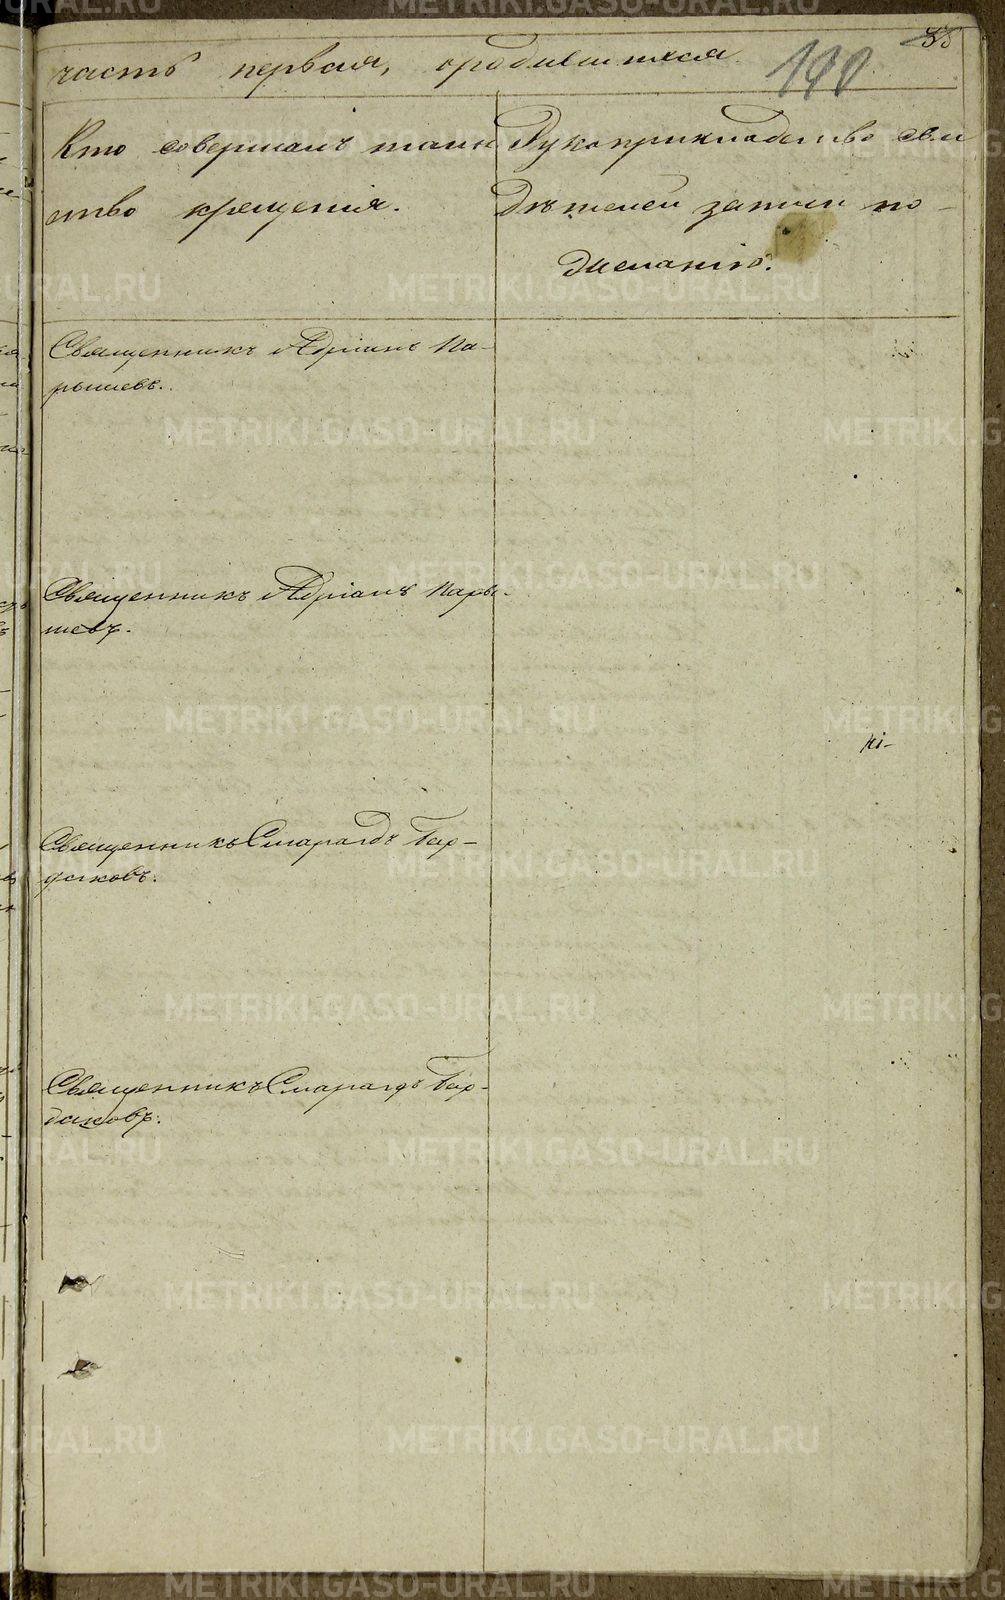 часть первая, о родившихся.
190
Кто совершалъ таин
ство крещенія.
Рукоприкладство сви
дѣтелей записи по
желанію.
Священникъ Адріанъ Па-
рышевъ.
Священникъ Адріанъ Пары-
шевъ.
Священникъ Смарагдъ
Священникъ Смарагдъ
METRIKI.GASO-URAL.RU